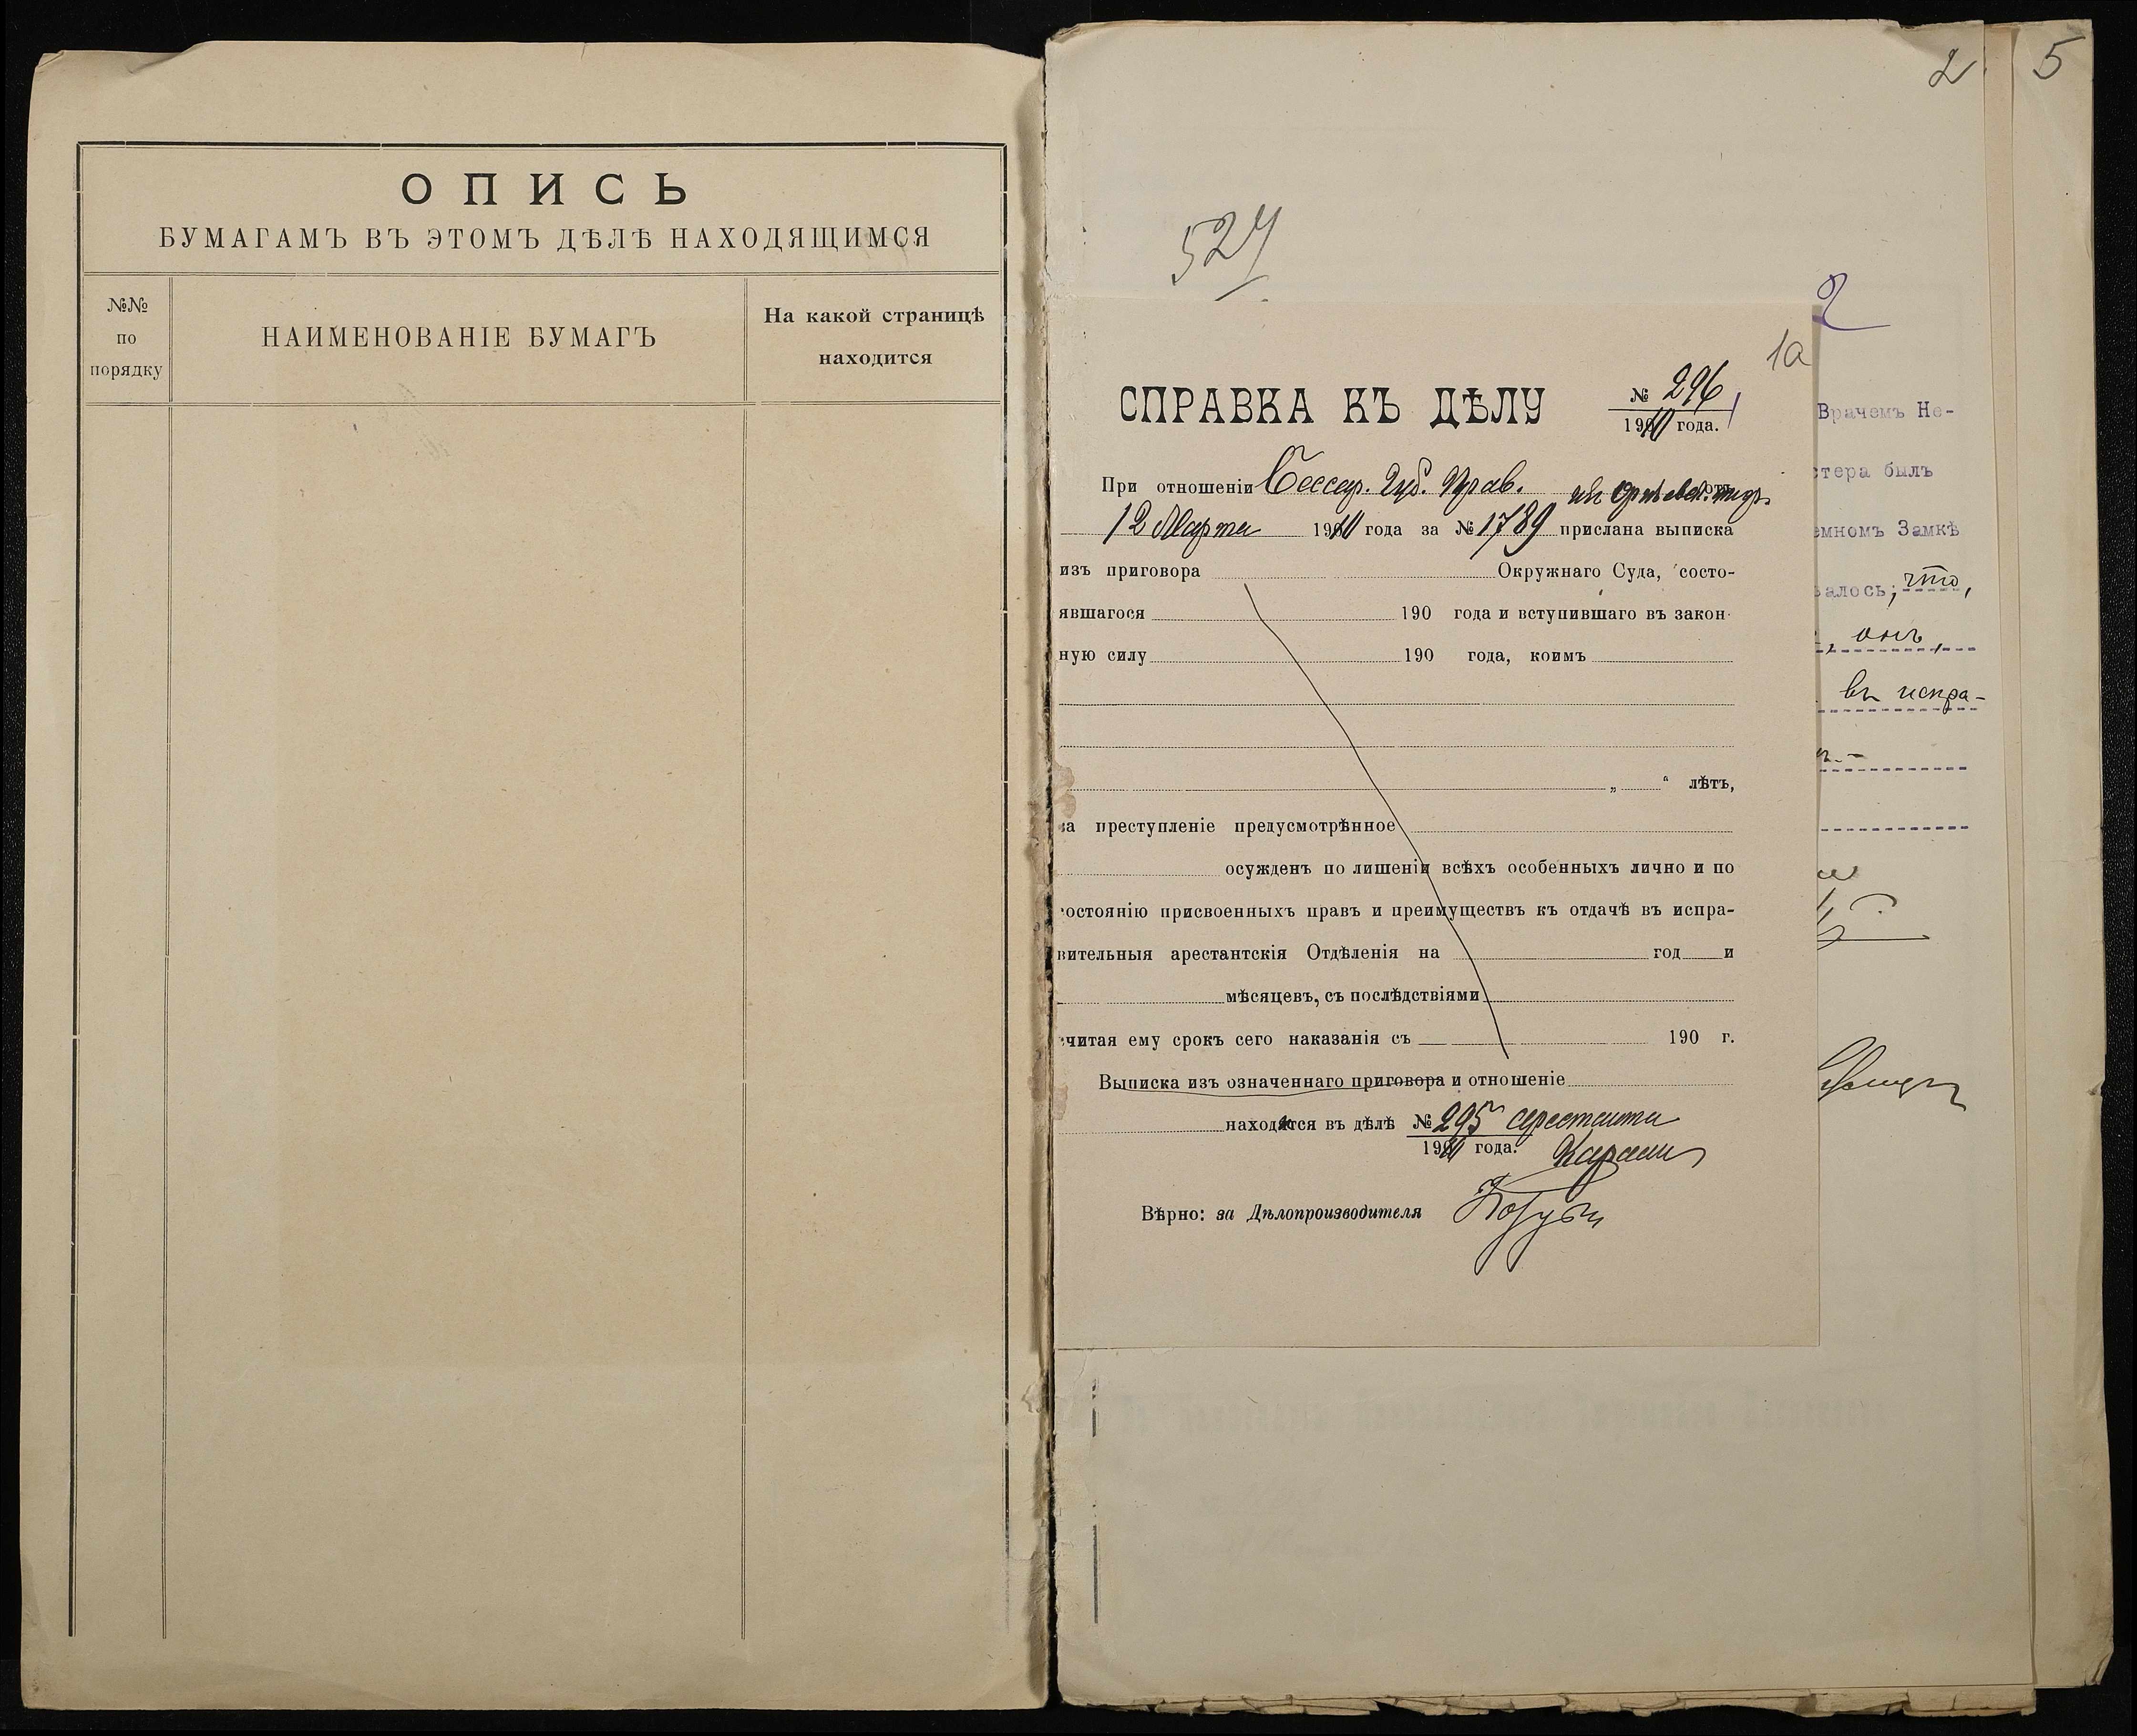 ОПИСЬ
БУМАГАМЪ ВЪ ЭТОМЪ ДѢЛѢ НАХОДЯЩИМСЯ
№№ по порядку
НАИМЕНОВАНІЕ БУМАГЪ
На какой страницѣ находится
2
5
527
2
1а
СПРАВКА КЪ ДѢЛУ № 296
1910 года.
При отношеніи Бессар. Губ. Прав. отъ
12 Марта 1910 года за № 1789 прислана выписка
изъ приговора Окружнаго Суда, состо-
явшагося 190 года и вступившаго въ закон-
ную силу 190 года, коимъ
„ “ лѣтъ,
за преступленіе предусмотрѣнное
осужденъ по лишеніи всѣхъ особенныхъ лично и по
состоянію присвоенныхъ правъ и преимуществъ къ отдачѣ въ испра-
вительныя арестантскія Отдѣленія на год и
мѣсяцевъ, съ послѣдствіями
считая ему срокъ сего наказанія съ 190 г.
Выписка изъ означеннаго приговора и отношеніе
находится въ дѣлѣ № 295 арестанта
1910 года.
Вѣрно: за Дѣлопроизводителя
Врачемъ Не-
стера былъ
емномъ Замкѣ
залось; что,
онъ,
въ испра-